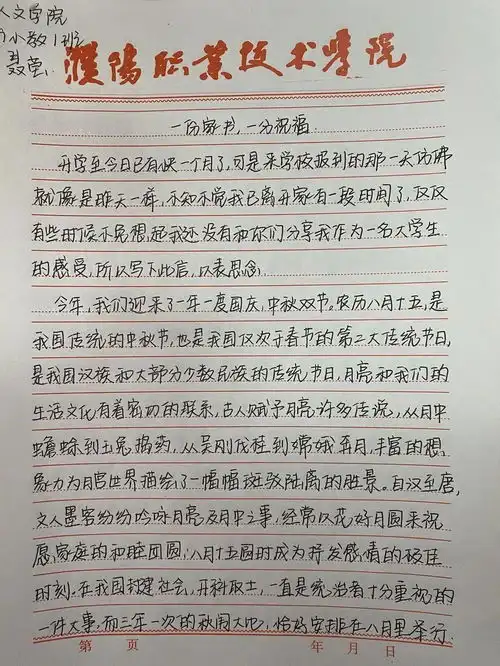 人文学院
小教1班
聂莹
濮阳职业技术学院
一份家书，一份祝福
开学至今日已有快一个月了，可是来学校报到的那一天仿佛
就像是昨天一样，不知不觉我已离开家有一段时间了，仅仅
有些时候不免想起我还没有和你们分享我作为一名大学生
的感受，所以写下此信，以表思念
今年，我们迎来了一年一度国庆，中秋双节。农历八月十五，是
我国传统的中秋节，也是我国仅次于春节的第二大传统节日，
是我国汉族和大部分少数民族的传统节日，月亮和我们的
生活文化有着密切的联系，古人赋予月亮许多传说，从月中
蟾蜍到玉兔捣药，从吴刚伐桂到嫦娥奔月，丰富的想
象力为月宫世界描绘了一幅幅斑驳陆离的胜景。自汉至唐，
文人墨客纷纷吟咏月亮及月中之事，经常以花好月圆来祝
愿家庭的和睦团圆，八月十五圆时成为抒发感情的极佳
时刻。在我国封建社会，开科取士，一直是统治者十分重视的
一件大事，而三年一次的秋闱大比，恰好安排在八月里举行
第 页 年 月 日